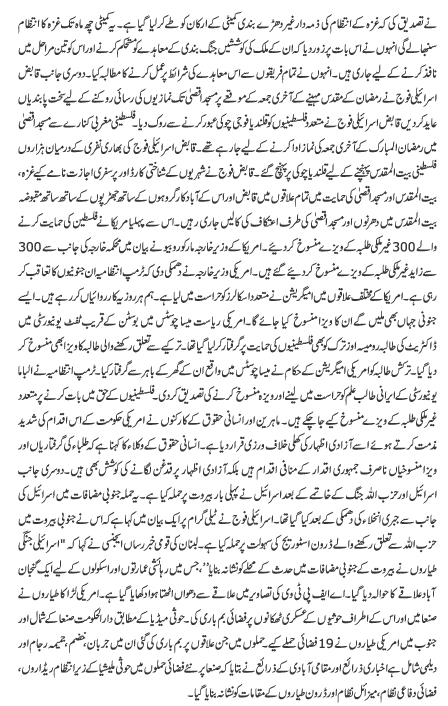 نے تصدیق کی کہ غزہ کے انتظام کی ذمہ دار غیر دھڑے بندی کمیٹی کے ارکان کو طے کر لیا گیا ہے۔ یہ کمیٹی چھ ماہ تک غزہ کا انتظام
سنبھالے گی انہوں نے اس بات پر زور دیا کہ ان کے ملک کی کوششیں جنگ بندی کے معاہدے کو مستحکم کرنے اور اس کو تین مراحل میں
نافذ کرنے کے لیے جاری ہیں۔ انہوں نے تمام فریقوں سے اس معاہدے کی شرائط پر عمل کرنے کا مطالبہ کیا۔ دوسری جانب قابض
اسرائیلی فوج نے رمضان کے مقدس مہینے کے آخری جمعہ کے موقعے پر مسجد اقصیٰ تک نمازیوں کی رسائی روکنے کے لیے سخت پابندیاں
عاید کر دیں قابض اسرائیلی فوج نے متعدد فلسطینیوں کو قلندیا فوجی چوکی عبور کرنے سے روک دیا۔ فلسطینی مغربی کنارے سے مسجد اقصیٰ
میں رمضان المبارک کے آخری جمعہ کی نماز ادا کرنے کے لیے جا رہے تھے۔ قابض اسرائیلی فوج کی بھاری نفری کے درمیان ہزاروں
فلسطینی بیت المقدس پہنچنے کے لیے قلندیا چوکی پر پہنچ گئے۔ قابض فوج نے شہریوں کے شناختی کارڈ اور سفری اجازت نامے کیے غزہ،
بیت المقدس اور مسجد اقصیٰ کی حمایت میں تمام علاقوں میں قابض اور اس کے آباد کار گروہوں کے ساتھ جھڑپوں کے ساتھ ساتھ مقبوضہ
بیت المقدس میں دھرنوں اور مسجد اقصیٰ کی طرف اعتکاف کی کالیں جاری ہیں۔ اس سے پہلے امریکا نے فلسطین کی حمایت کرنے
والے 300 غیر ملکی طلبہ کے ویزے منسوخ کر دیئے۔ امریکا کے وزیر خارجہ مارکو روبیو نے بیان میں محکمہ خارجہ کی جانب سے 300
سے زاید غیر ملکی طلبہ کے ویزے منسوخ کر دیئے گئے ہیں۔ امریکی وزیر خارجہ نے دھمکی دی کہ ٹرمپ انتظامیہ ان جنونیوں کا تعاقب کر
رہی ہے۔ امریکا کے مختلف علاقوں میں امیگریشن نے متعدد اسکالرز کو حراست میں لیا ہے۔ ہم ہر روز یہ کارروائیاں کر رہے ہیں۔ ایسے
جنونی جہاں بھی ملیں گے ان کا ویزا منسوخ کیا جائے گا۔ امریکی ریاست میسا چوسٹس میں بوسٹن کے قریب ٹفٹ یونیورسٹی میں
ڈاکٹریٹ کی طالبہ رومیسا اوزترک کو بھی فلسطینیوں کی حمایت پر گرفتار کر لیا گیا تھا۔ ترکیے سے تعلق رکھنے والی طالبہ کا ویزا بھی منسوخ کر
دیا گیا۔ ترکش طالبہ کو امریکی امیگریشن کے حکام نے میسا چوسٹس میں واقع ان کے گھر کے باہر سے گرفتار کیا۔ ٹرمپ انتظامیہ نے الباما
یونیورسٹی کے ایرانی طالب علم کو حراست میں لینے اور ویزہ منسوخ کرنے کی تصدیق کر دی۔ فلسطینیوں کے حق میں بات کرنے پر متعدد
غیر ملکی طلبہ کے ویزے منسوخ کیے جا چکے ہیں۔ ماہرین اور انسانی حقوق کے کارکنوں نے امریکی حکومت کے اس اقدام کی شدید
مذمت کرتے ہوئے اسے آزادی اظہار کی کھلی خلاف ورزی قرار دیا ہے۔ انسانی حقوق کے وکلاء کا کہنا ہے کہ طلباء کی گرفتاریاں اور
ویزا منسوخیاں ناصرف جمہوری اقدار کے منافی اقدام ہیں بلکہ آزادی اظہار پر قدغن لگانے کی کوشش بھی ہیں۔ دوسری جانب
اسرائیل اور حزب اللہ جنگ کے خاتمے کے بعد اسرائیل نے پہلی بار بیروت پر حملہ کیا ہے۔ یہ حملہ جنوبی مضافات میں اسرائیل کی
جانب سے جبری انخلاء کی دھمکی کے بعد کیا گیا تھا۔ اسرائیلی فوج نے ٹیلی گرام پر ایک بیان میں کہا ہے کہ اس نے جنوبی بیروت میں
حزب اللہ سے تعلق رکھنے والے ڈرون اسٹوریج کی سہولت پر حملہ کیا ہے۔ لبنان کی قومی خبر رساں ایجنسی نے کہا کہ "اسرائیلی جنگی
طیاروں نے بیروت کے جنوبی مضافات میں حدث کے محلے کو نشانہ بنایا"، جس میں رہائشی عمارتوں اور اسکولوں کے لیے ایک گنجان
آباد علاقے کا حوالہ دیا گیا۔ اے ایف پی ٹی وی کی تصاویر میں علاقے سے دھواں اٹھتا ہوا دکھایا گیا ہے۔ امریکی لڑاکا طیاروں نے
صنعا میں اور اس کے اطراف حوثیوں کے عسکری ٹھکانوں پر فضائی بم باری کی۔ حوثی میڈیا کے مطابق دارالحکومت صنعا کے شمال اور
جنوب میں امریکی طیاروں نے 19 فضائی حملے کیے۔ حملوں میں جن علاقوں پر بم باری کی گئی ان میں جربان، نضم، جمیمہ رجام اور
دیلمی شامل ہے اخباری ذرائع اور مقامی آبادی کے ذرائع نے بتایا کہ صنعا پر نئے فضائی حملوں میں حوثی ملیشیا کے زیر انتظام ریڈاروں،
فضائی دفاعی نظام، میزائل نظام اور ڈرون طیاروں کے مقامات کو نشانہ بنایا گیا۔